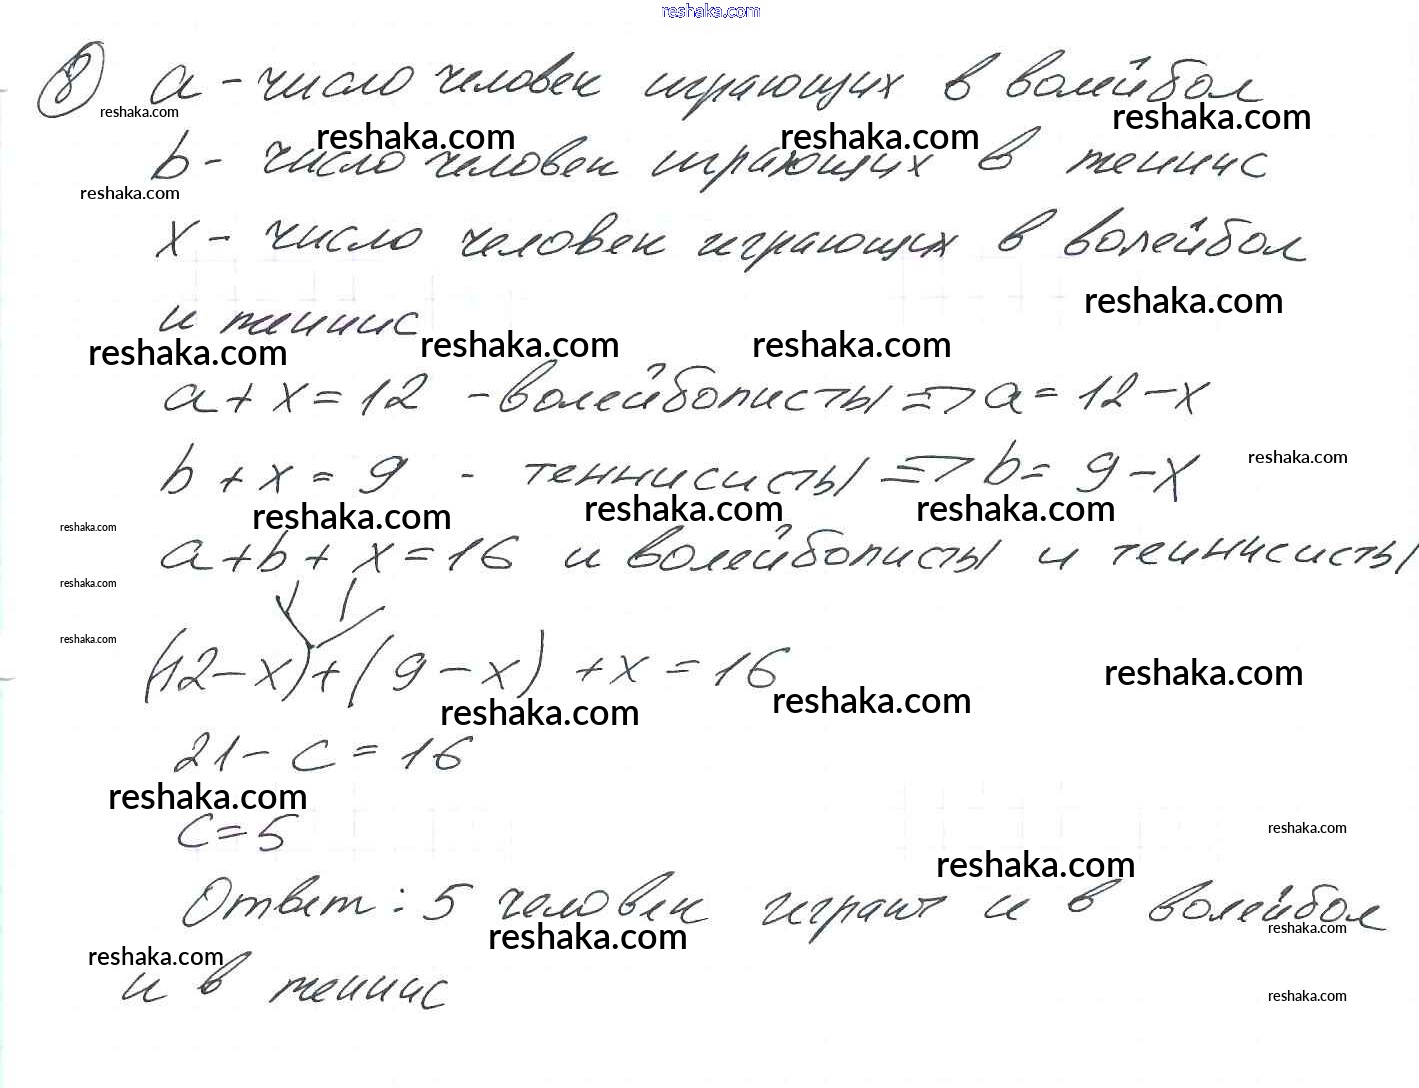 reshaka.com
8 a - число человек играющих в волейбол
reshaka.com reshaka.com reshaka.com reshaka.com
b - число человек играющих в теннис
reshaka.com
x - число человек играющих в волейбол
reshaka.com
и теннис
reshaka.com reshaka.com reshaka.com
a + x = 12 - волейболисты => a = 12 - x
b + x = 9 - теннисисты => b = 9 - x
reshaka.com
reshaka.com reshaka.com reshaka.com
reshaka.com
a + b + x = 16 и волейболисты и теннисисты
reshaka.com
reshaka.com
(12 - x) + (9 - x) + x = 16
reshaka.com reshaka.com reshaka.com
21 - c = 16
reshaka.com
c = 5
reshaka.com
reshaka.com
Ответ: 5 человек играют и в волейбол
reshaka.com reshaka.com
reshaka.com
и в теннис
reshaka.com